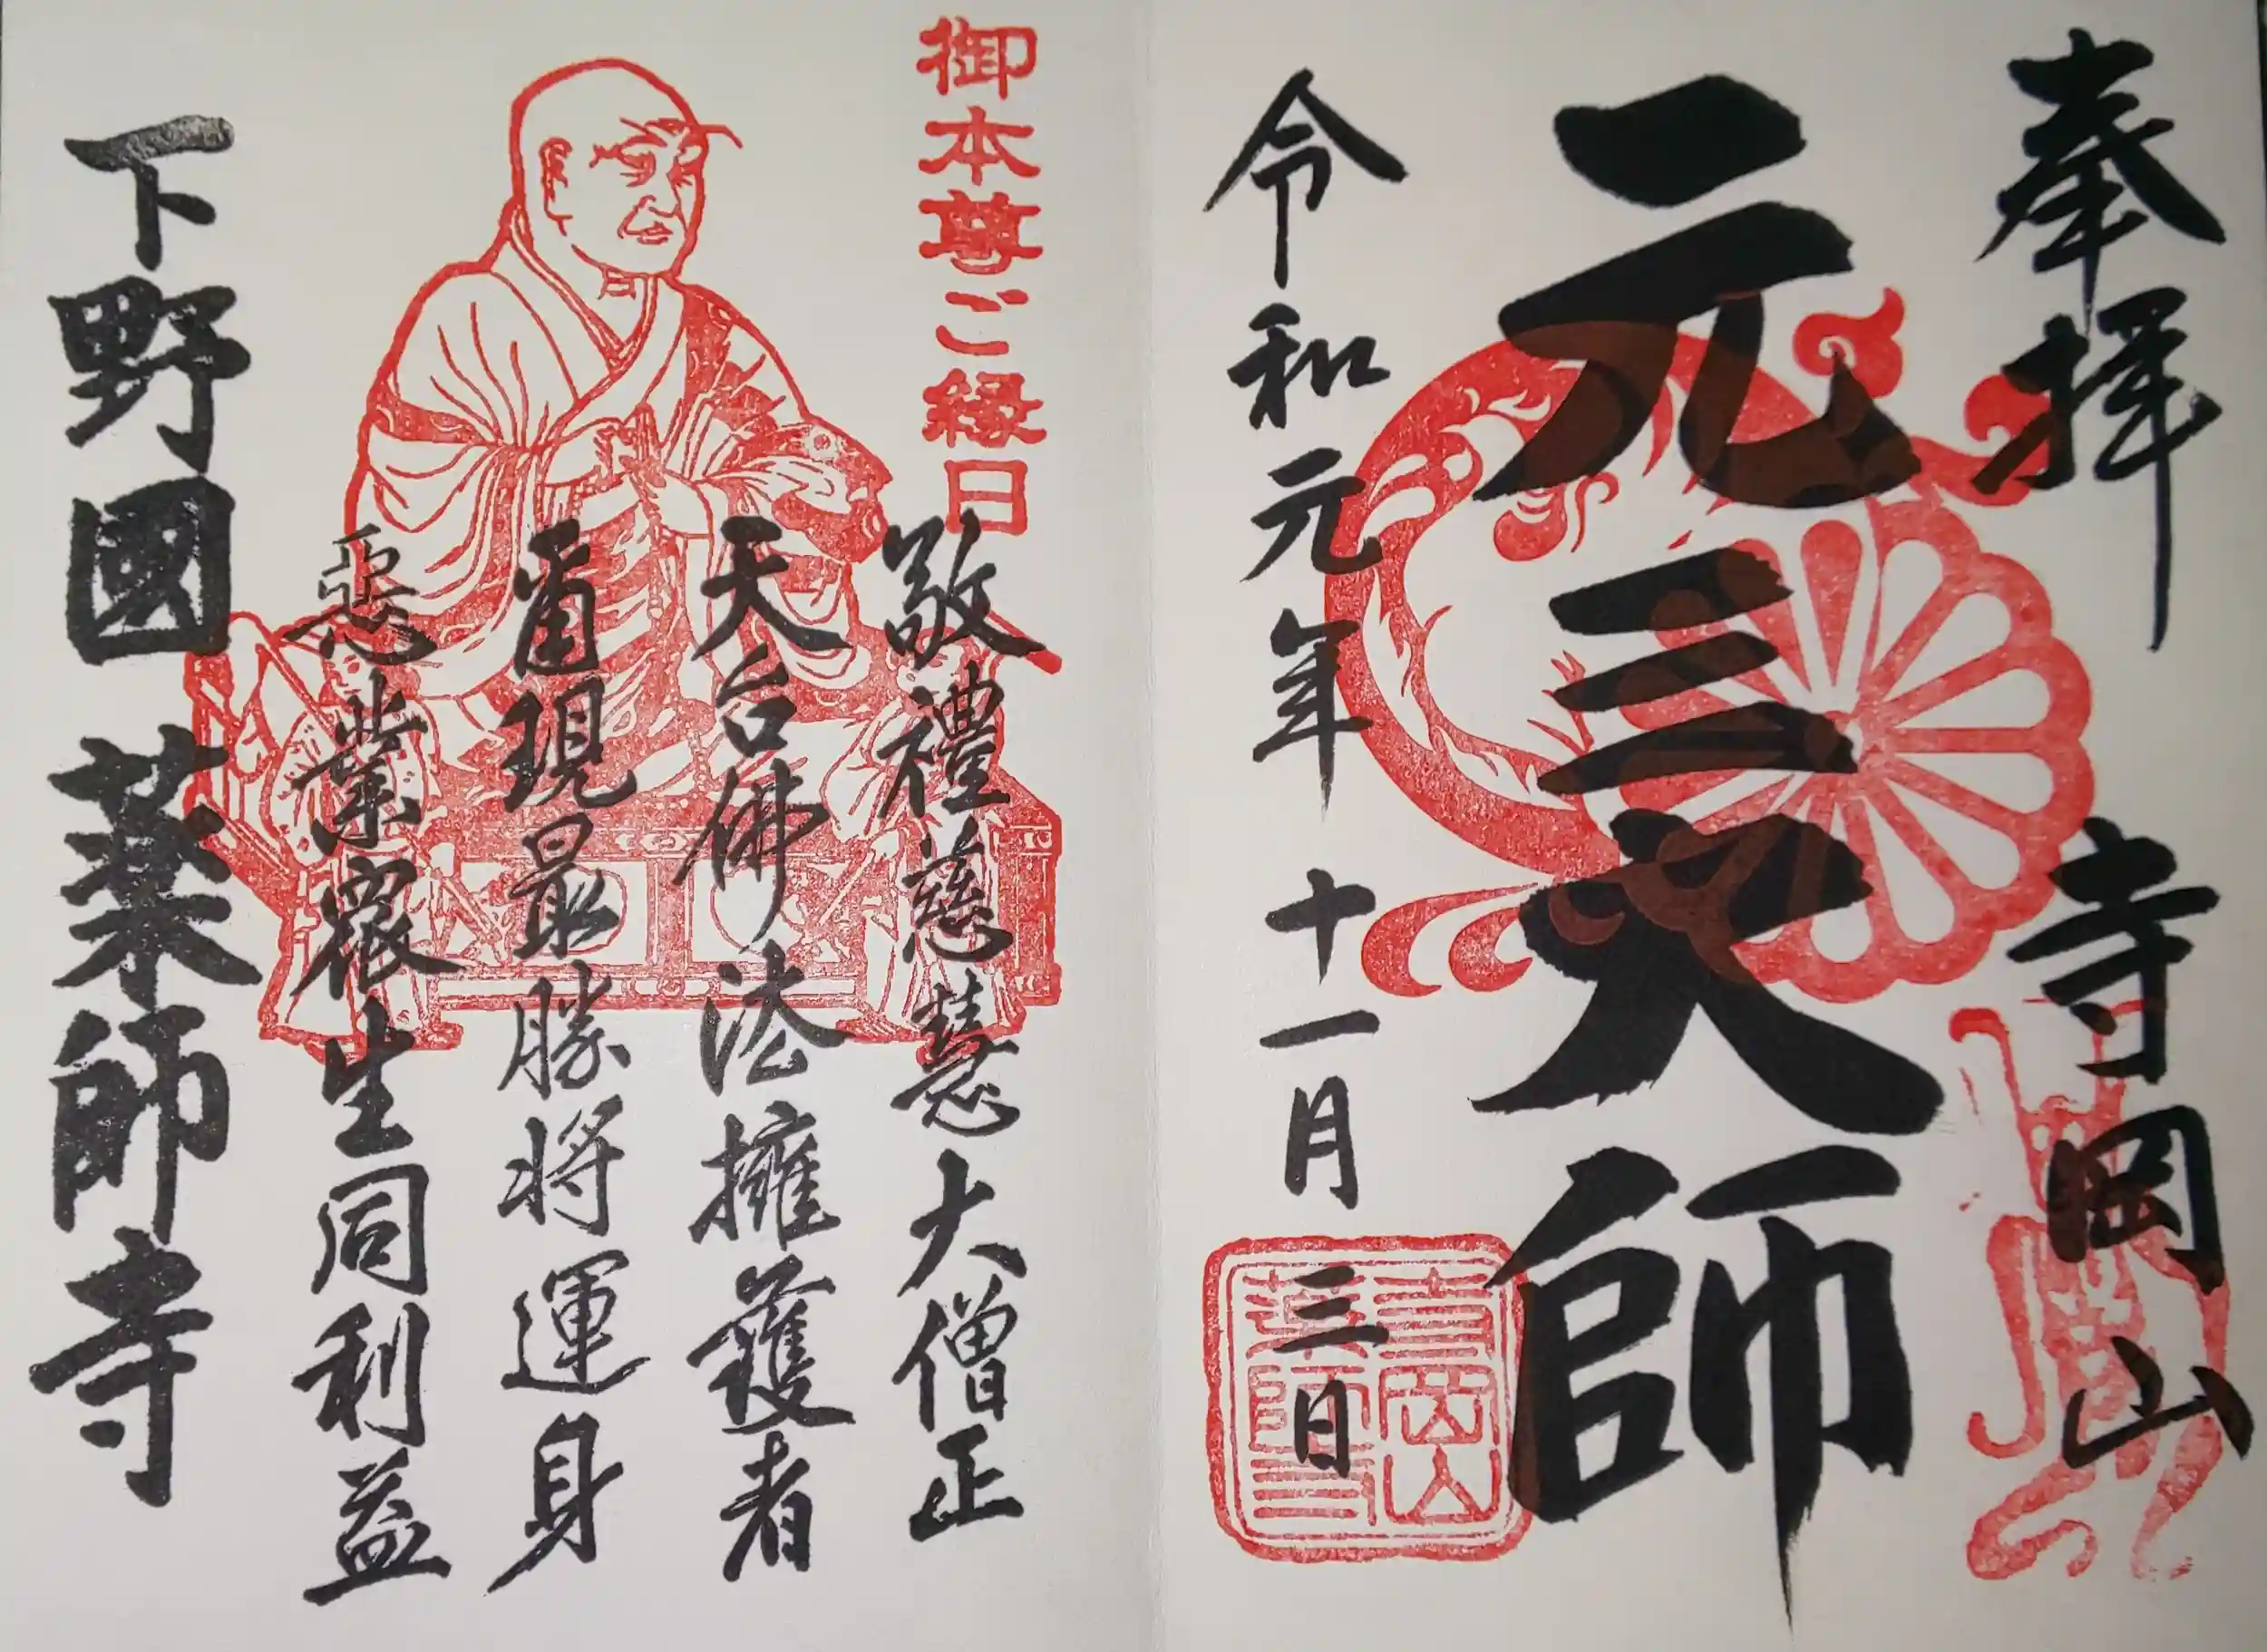 奉拝
寺岡山
元三大師
令和元年十一月三日
寺岡山
薬師寺
御本尊ご縁日
敬禮慈慧大僧正
天台佛法擁護者
示現最勝将運身
悪業衆生同利益
下野國薬師寺